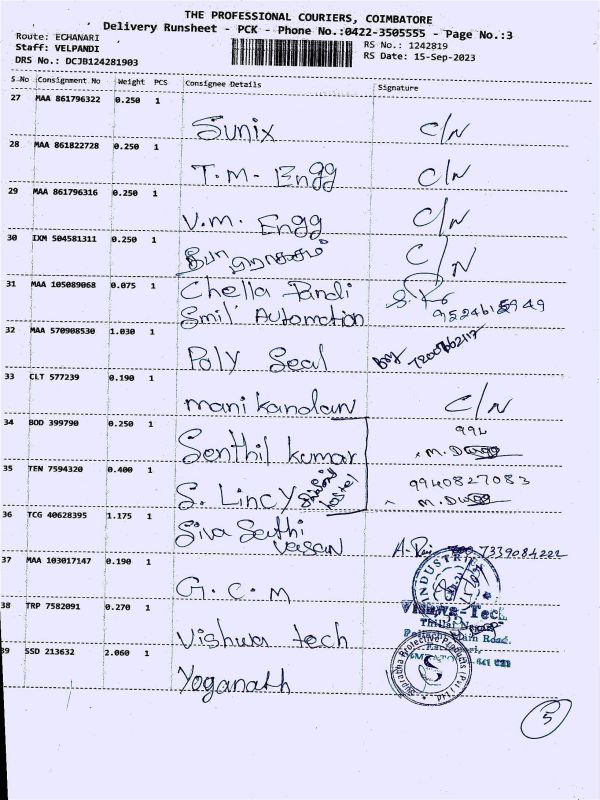 THE PROFESSIONAL COURIERS, COIMBATORE
Delivery Runsheet - PCK - Phone No.:0422-3505555 - Page No.:3
Route: ECHANARI
Staff: VELPANDI
DRS No.: DCJB124281903
RS No.: 1242819
RS Date: 15-Sep-2023
S.No Consignment No Weight PCS Consignee Details Signature
27 MAA 861796322 0.250 1 Sunix C/N
28 MAA 861822728 0.250 1 T.M. Engg C/N
29 MAA 861796316 0.250 1 V.M. Engg C/N
30 IXM 504581311 0.250 1 C/N
31 MAA 105089068 0.075 1 Chella Pandi
Smil Automation
32 MAA 570908530 1.030 1 Poly Seal
33 CLT 577239 0.190 1 manikandan C/N
34 BOD 399790 0.250 1 Senthil kumar 994
35 TEN 7594320 0.400 1 S. Lincy hostel 9940827083
36 TCG 40628395 1.175 1 Siva Sathi
vasan 7339084222
37 MAA 103017147 0.190 1 G.C.M
38 TRP 7582091 0.270 1 Vishwa tech
INDUSTRI
Vishwa-Tech
Main Road
39 SSD 213632 2.060 1 Yoganath
Suprabha Protective Products (Pvt) Ltd
5